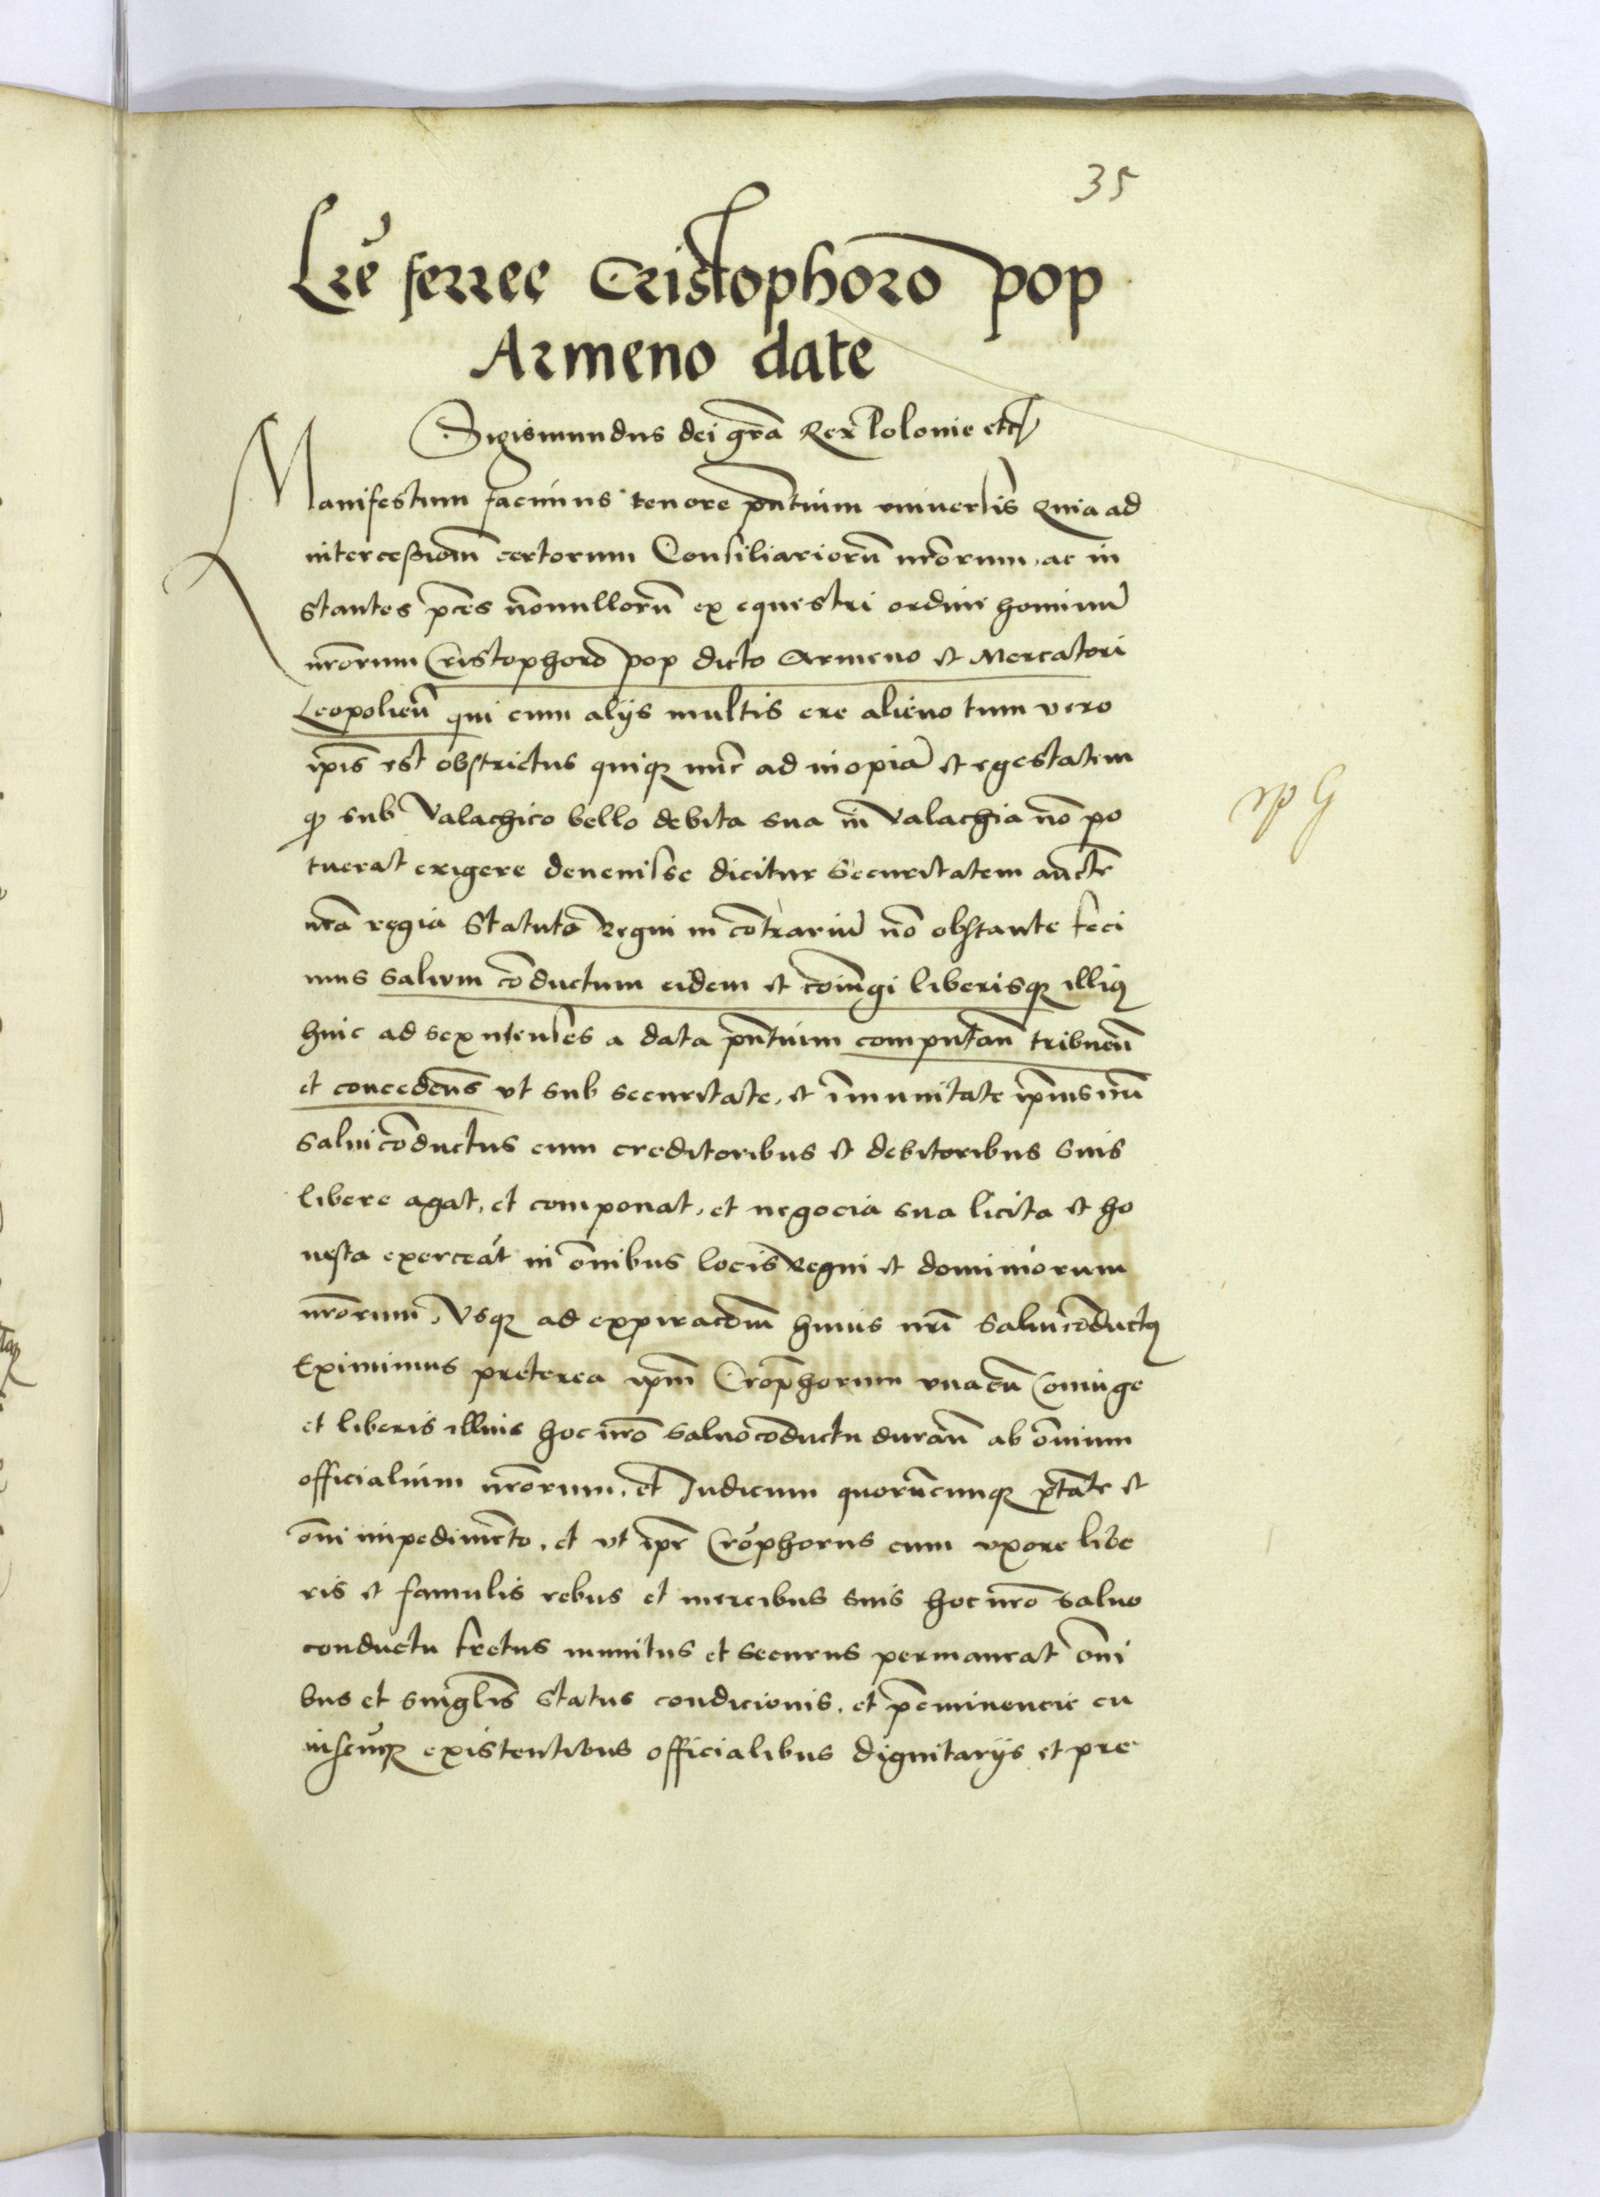 35
Lrē ferree Cristophoro pop
Armeno date
Sigismundus dei grā Rex Polonie etc
Manifestum facimus tenore pñtium universis Quia ad
intercessiom̄ certorum Consiliariorū nr̄orum, ac in
stantes pces nōnullorū ex equestri ordine hominū
nr̄orum Cristophoro pop dicto Armeno et Mercatori
Leopolien̄ qui cum alijs multis ere alieno tum vero
ip̄is est obstrictus quiqꝫ nūc ad inopiā et egestatem
ꝙ sub Valachico bello debita sua in Valachia nō po
tuerat exigere devenisse dicitur Securitatem auctē
nr̄a regia Statuto Regni in cōtrariū nō obstante feci
mus salvum cōductum eidem et cōiugi liberisqꝫ illiꝰ
hinc ad sex menses a data pñtium computan̄ tribuen̄
et conceden̄s ut sub securitate, et īmunitate ip̄ius nr̄i
salvi cōductus cum creditoribus et debitoribus suis
libere agat, et componat, et negocia sua licita et ho
nesta exerceat in ōnibus locis Regni et dominiorum
nr̄orum, Usqꝫ ad expiracōm̄ huius nr̄i Salviconductꝰ
Eximimus preterea ip̄m Cr̄ophorum unacū Coniuge
et liberis illius hoc nr̄o salvocōductu duran̄ ab ōnium
officialium nr̄orum, et Iudicum quorūcunqꝫ ptāte et
ōni impedimēto, et ut ip̄e Crōphorus cum uxore libe
ris et famulis rebus et mercibus suis hoc nr̄o salvo
conductu fretus munitus et securus permaneat ōni
bus et singlis status condicionis, et p̄eminencie cu
iuscūqꝫ existentibus officialibus dignitarijs et pre